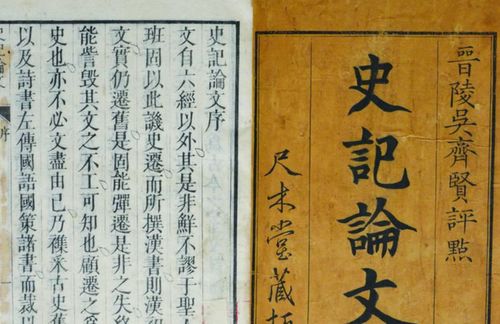 晉陵吳齊賢評點
史記論文
尺木堂藏板
史記論文序
文自六經以外其是非鮮不謬于聖
班固以此譏史遷而所撰漢書則漢
文實仍遷舊是固能彈遷是非之失
能訾毀其文之不工可知也顧遷之爲
史也亦不必文盡由己乃襍釆古史舊
以及詩書左傳國語國策諸書而裁以
史記論文
序